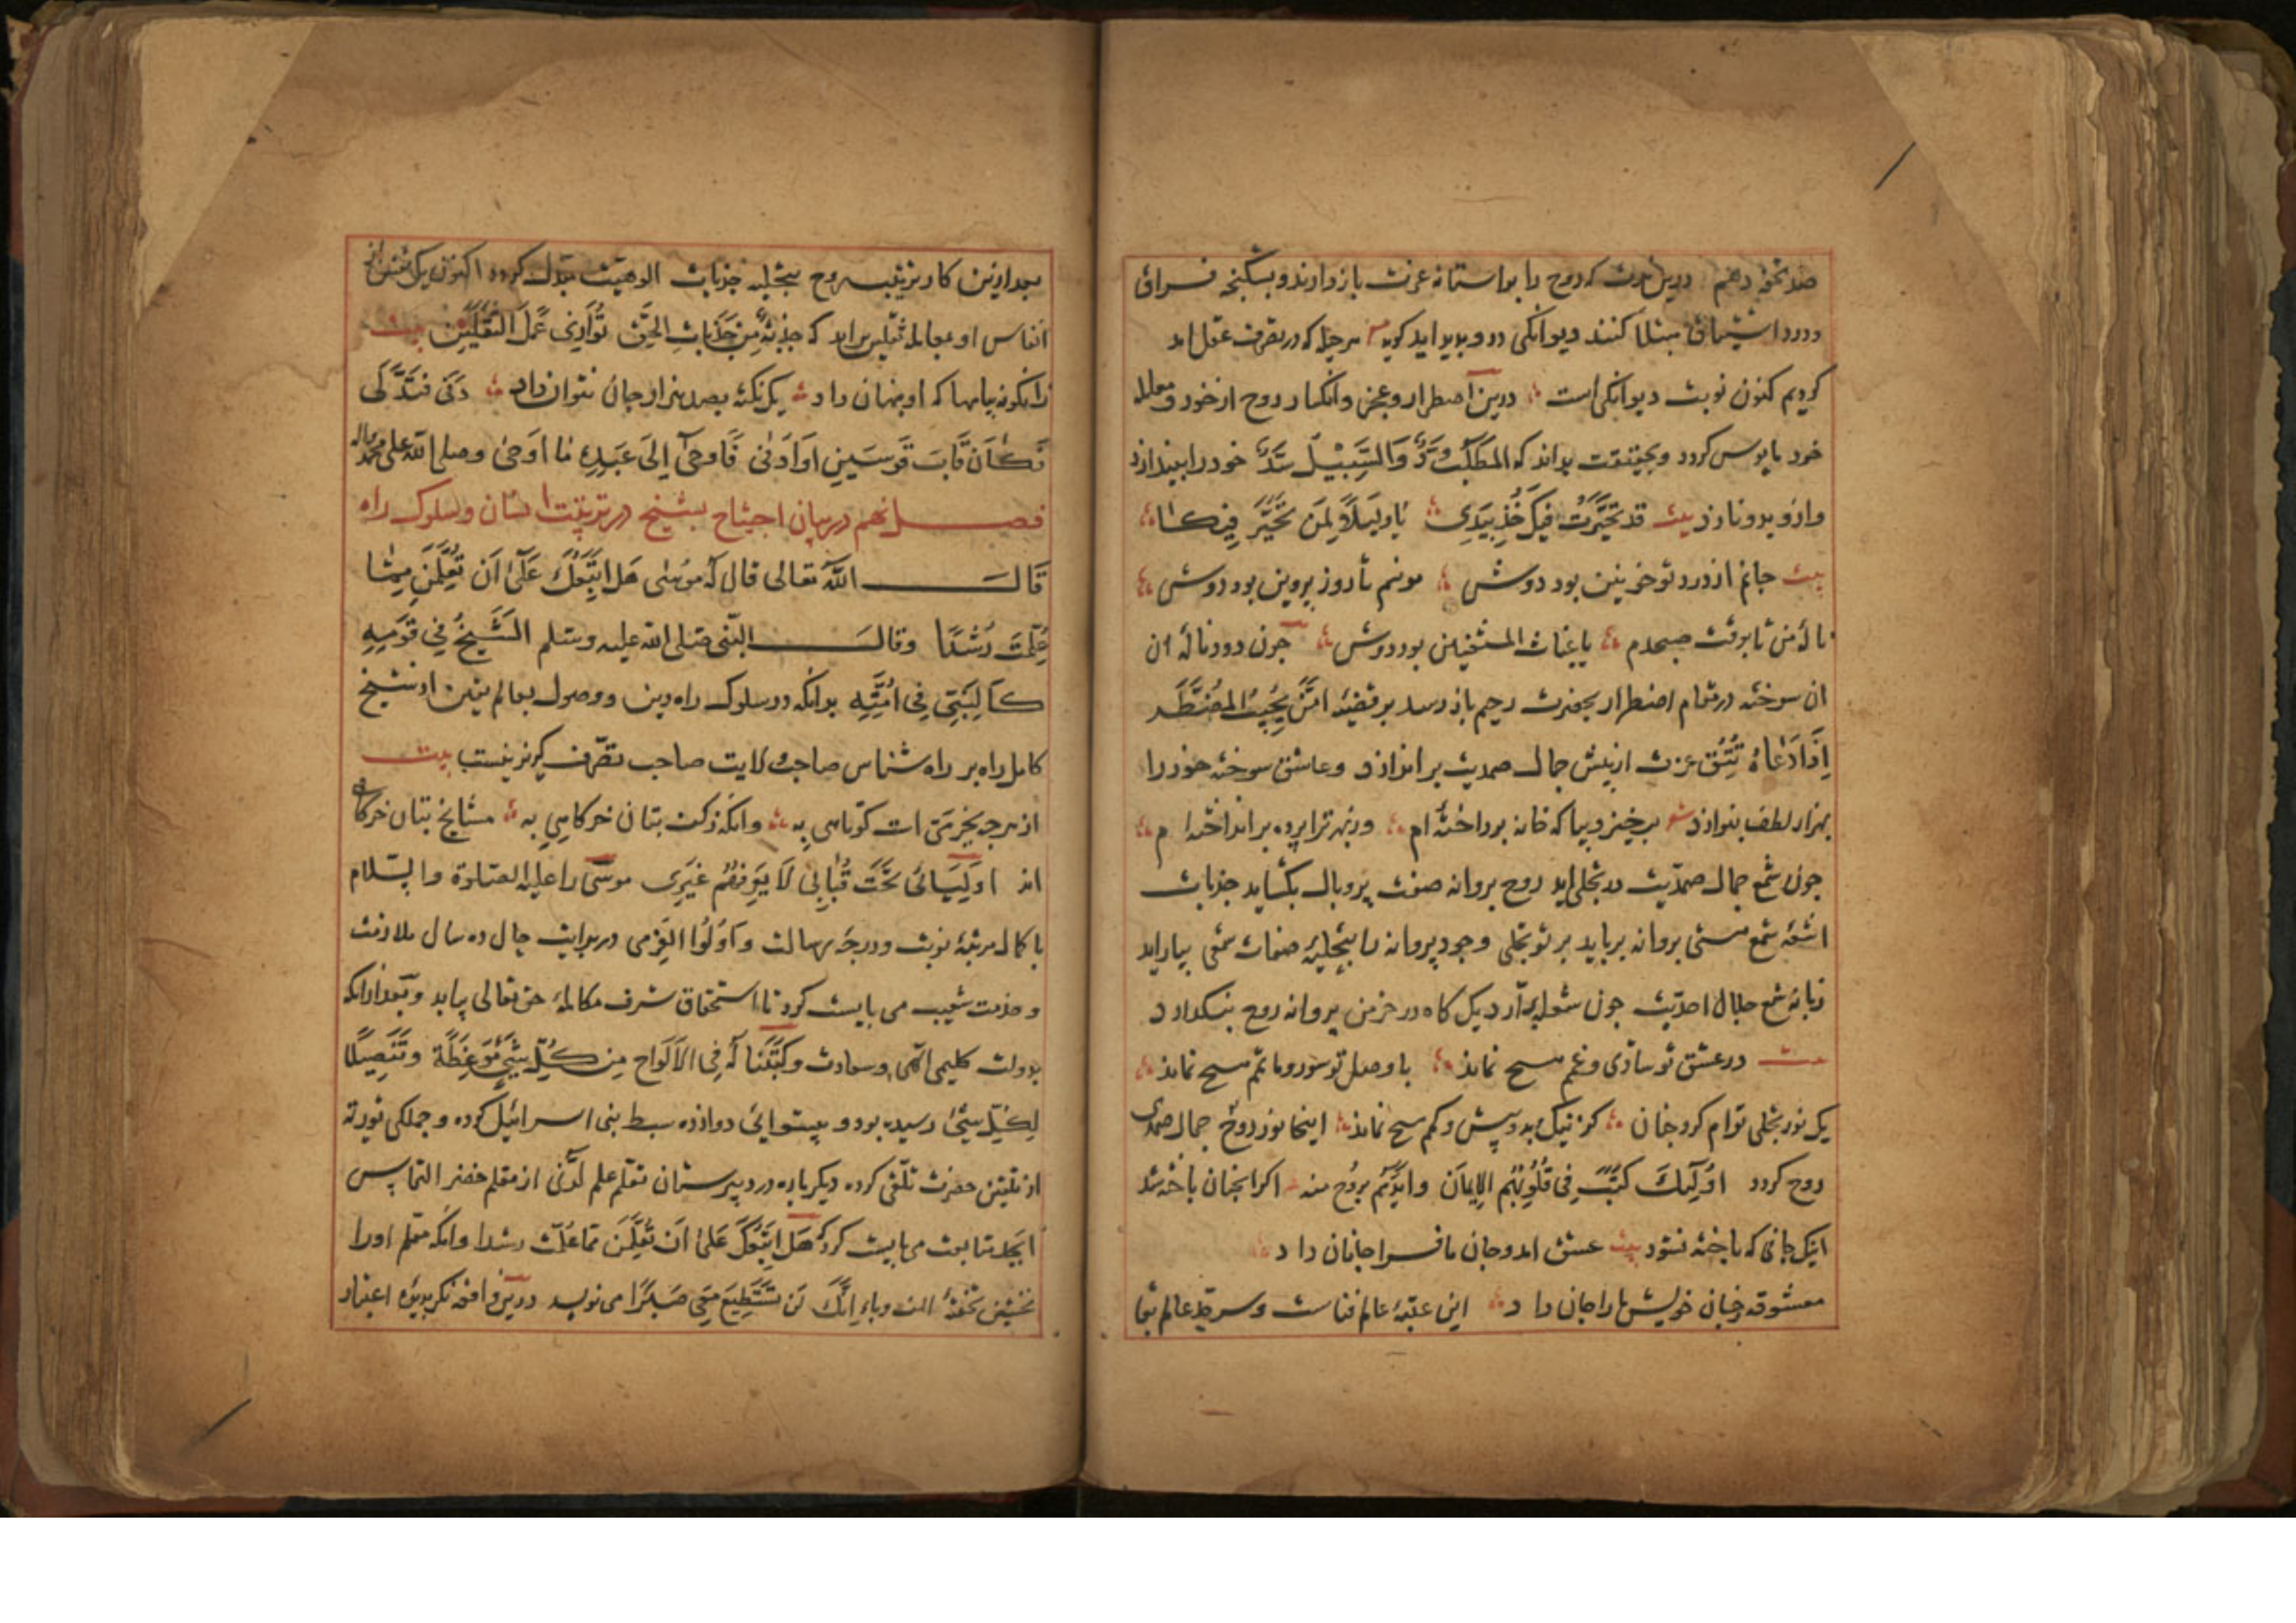 صد نحو دهم درین مدت که روح را بر آستانه عزت باز دارند و بشکنجه فراق
و درد اشتیاق مبتلا کنند دیوانکی درو پدید اید کوید هر حیله که در تصرف عقل اید
کردیم کنون نوبت دیوانکی است درین اضطرار و عجز و انکسار روح از خود و معامله
خود مایوس کردد و بحقیقت بداند که المطلب رد والسبیل سد خود را بیندازد
و ازو بدو نازد بیت قد تحیرت فیک خذ بیدی یا دلیلا لمن تحیر فیکا
بیت جانم از درد تو خونین بود دوش مونسم تا روز پروین بود دوش
ناله من تا بوقت صبحدم یا غیاث المستغیثین بود دوش چون دود ناله ان
ان سوخته در مقام اضطرار بحضرت رحیم باز رسد بر قضیه امن یجیب المضطر
اذا دعاه تتق عزت از پیش جمال صمدیت براندازد و عاشق سوخته خود را
بهزار لطف بنوازد برخیز و بیا که خانه پرداخته ام وز بهر ترا پرده برانداخته ام
چون شمع جمال صمدیت در تجلی اید روح پروانه صفت پر و بال بکشاید جذبات
اشعه شمع هستی پروانه برباید پرتو تجلی وجود پروانه را بتحلیه صفات شمعی بیاراید
زبانه شمع جلال احدیت چون شعله برآرد یک کاه در خرمن پروانه روح بنکذارد
بیت در عشق تو شادی و غمم هیچ نماند با وصل تو سور و ماتمم هیچ نماند
یک نور تجلی توام کرد چنان کز نیک و بد و بیش و کم هیچ نماند اینجا نور روح جمال صمدی
روح کردد اولئک کتب فی قلوبهم الایمان وایدهم بروح منه اکر انجان باخته شد
اینک جانی که باخته نشود بیت عشق امد و جان ما فرا جانان داد
معشوقه ز جان خویش ما را جان داد این عتبه عالم فناست و سرحد عالم بقا
بعد ازین کار تربیت روح بتجلیه جذبات الوهیت بدل کردد اکنون یک نفس از
انفاس او بمعامله ثقلین براید که جذبة من جذبات الحق توازی عمل الثقلین بیت
زانکونه پیامها که او پنهان داد یک نکته بصد هزار جان نتوان داد دنی فتدلی
فکان قاب قوسین او ادنی فاوحی الی عبده ما اوحی وصلی الله علی محمد واله
فصل نهم در بیان احتیاج بشیخ در تربیت انسان و سلوک راه
قال الله تعالی قال له موسی هل اتبعک علی ان تعلمن مما
علمت رشدا وقال النبی صلی الله علیه وسلم الشیخ فی قومه
کالنبی فی امته بدانکه در سلوک راه دین و وصول بعالم یقین از شیخ
کامل راه بر راه شناس صاحب ولایت صاحب تصرف کزیر نیست بیت
از هر چه بجز می است کوتاهی به وانکه ز کف بتان خرکاهی به مشایخ بتان خرکاهی
اند اولیائی تحت قبابی لا یعرفهم غیری موسی را علیه الصلوة والسلام
با کمال مرتبه نبوت و درجه رسالت و اولوا العزمی در بدایت حال ده سال ملازمت
و خدمت شعیب می بایست کرد تا استحقاق شرف مکالمه حق تعالی بیابد و بعد ازانکه
بدولت کلیمی اللهی وسعادت وکتبنا له فی الالواح من کل شیء موعظة وتفصیلا
لکل شیء رسیده بود و پیشوائی دوازده سبط بنی اسرائیل کرده و جملکی توریة
از تلقین حضرت تلقی کرده دیکر باره در دبیرستان تعلم علم لدنی از معلم خضر التماس
ابجد متابعت می بایست کرد که هل اتبعک علی ان تعلمن مما علمت رشدا وانکه معلم اورا
نخستین تخته الف و با انک لن تستطیع معی صبرا می نویسد درین واقعه نکر بدیده اعتبار